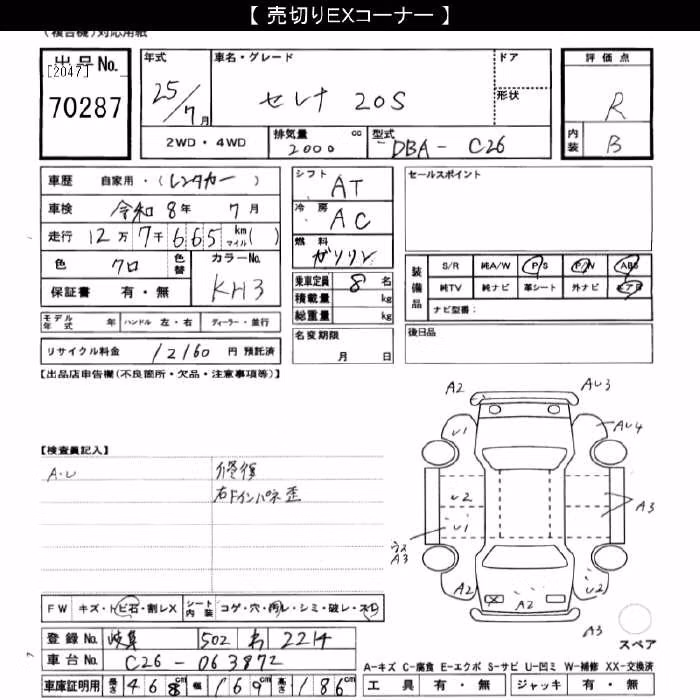 【 売切りEXコーナー 】
(複合機)対応用紙
出品No. [2047] 70287
年式 25/7月
車名・グレード セレナ 20S
ドア
形状
2WD・4WD
排気量 2000 cc
型式 DBA-C26
評価点 R
内装 B
車歴 自家用・(レンタカー)
車検 令和8年 7月
走行 12万7千665 km マイル( )
色 クロ
色替
カラーNo. KH3
保証書 有・無
シフト AT
冷房 AC
燃料 ガソリン
乗車定員 8名
積載量 kg
総重量 kg
セールスポイント
装備品
S/R 純A/W P/S P/W ABS
純TV 純ナビ 革シート 外ナビ エアB
ナビ型番:
モデル年式 年 ハンドル 左・右 ディーラー・並行
リサイクル料金 12160 円 預託済
名変期限 月 日
後日品
【出品店申告欄(不良箇所・欠品・注意事項等)】
A2 AU3
U1 AU4
U2 A3
U1
A3
U2
A2
A3
スペア
【検査員記入】
A・U
修復
右Fインパネ歪
FW キズ・トビ石・割レX
シート内装 コゲ・穴・汚レ・シミ・破レ・スレ
登録No. 岐阜 502 2214
車台No. C26-063872
車庫証明用 長さ 468cm 幅 169cm 高さ 186cm
A-キズ C-腐食 E-エクボ S-サビ U-凹ミ W-補修 XX-交換済
工具 有・無 ジャッキ 有・無